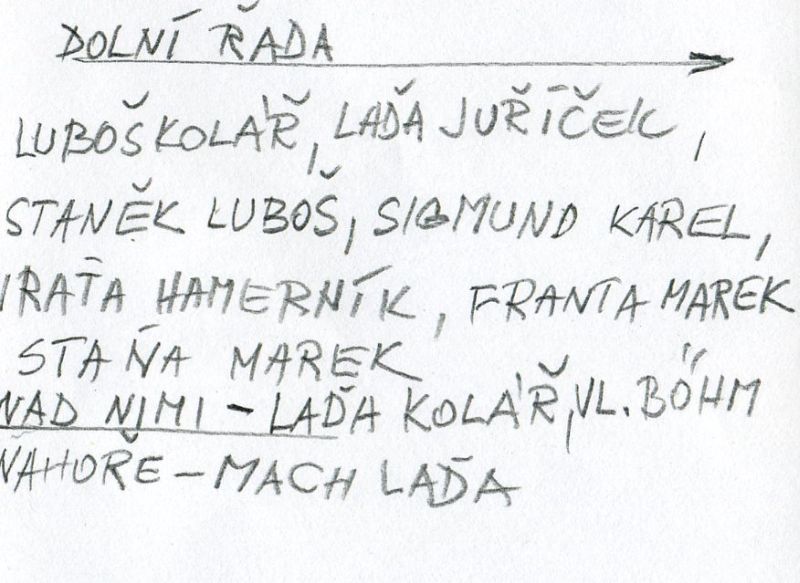 DOLNÍ ŘADA
LUBOŠ KOLÁŘ, LAĎA JUŘÍČEK,
STANĚK LUBOŠ, SIGMUND KAREL,
VRAŤA HAMERNÍK, FRANTA MAREK
STAŇA MAREK
NAD NIMI - LAĎA KOLÁŘ, VL. BÖHM
NAHOŘE - MACH LAĎA